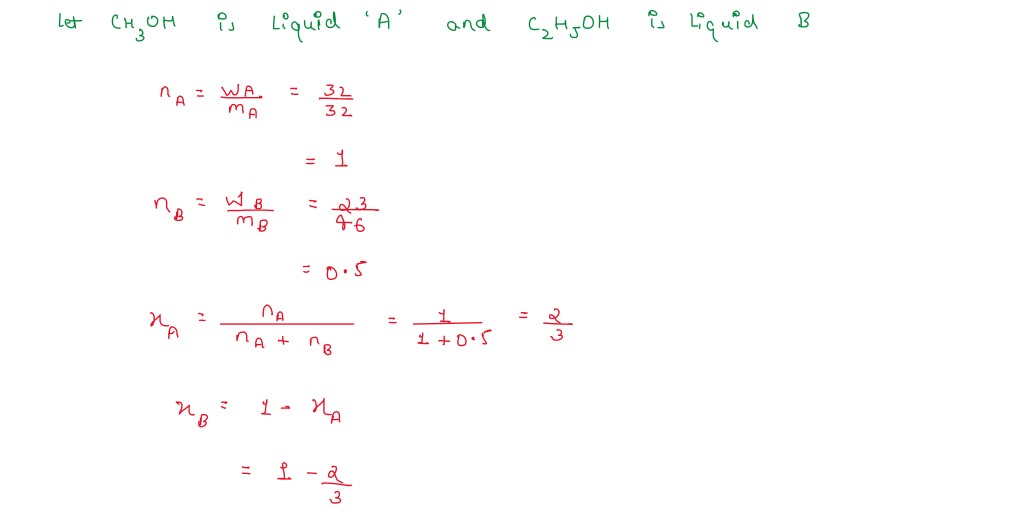 let CH₃OH is Liquid 'A' and C₂H₅OH is Liquid B
n_A = W_A/m_A = 32/32
= 1
n_B = W_B/m_B = 23/46
= 0.5
x_A = n_A/(n_A + n_B) = 1/(1+0.5) = 2/3
x_B = 1 - x_A
= 1 - 2/3